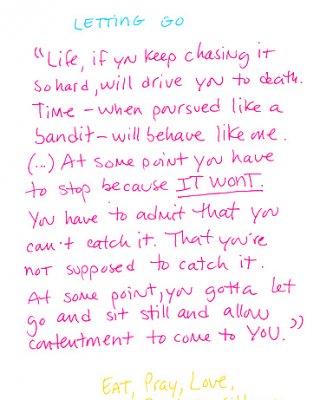 LETTING GO
"Life, if you keep chasing it
so hard, will drive you to death.
Time - when poursued like a
bandit - will behave like one.
(...) At some point you have
to stop because IT WONT.
You have to admit that you
can't catch it. That you're
not supposed to catch it.
At some point, you gotta let
go and sit still and allow
contentment to come to YOU."
EAT, Pray, Love,